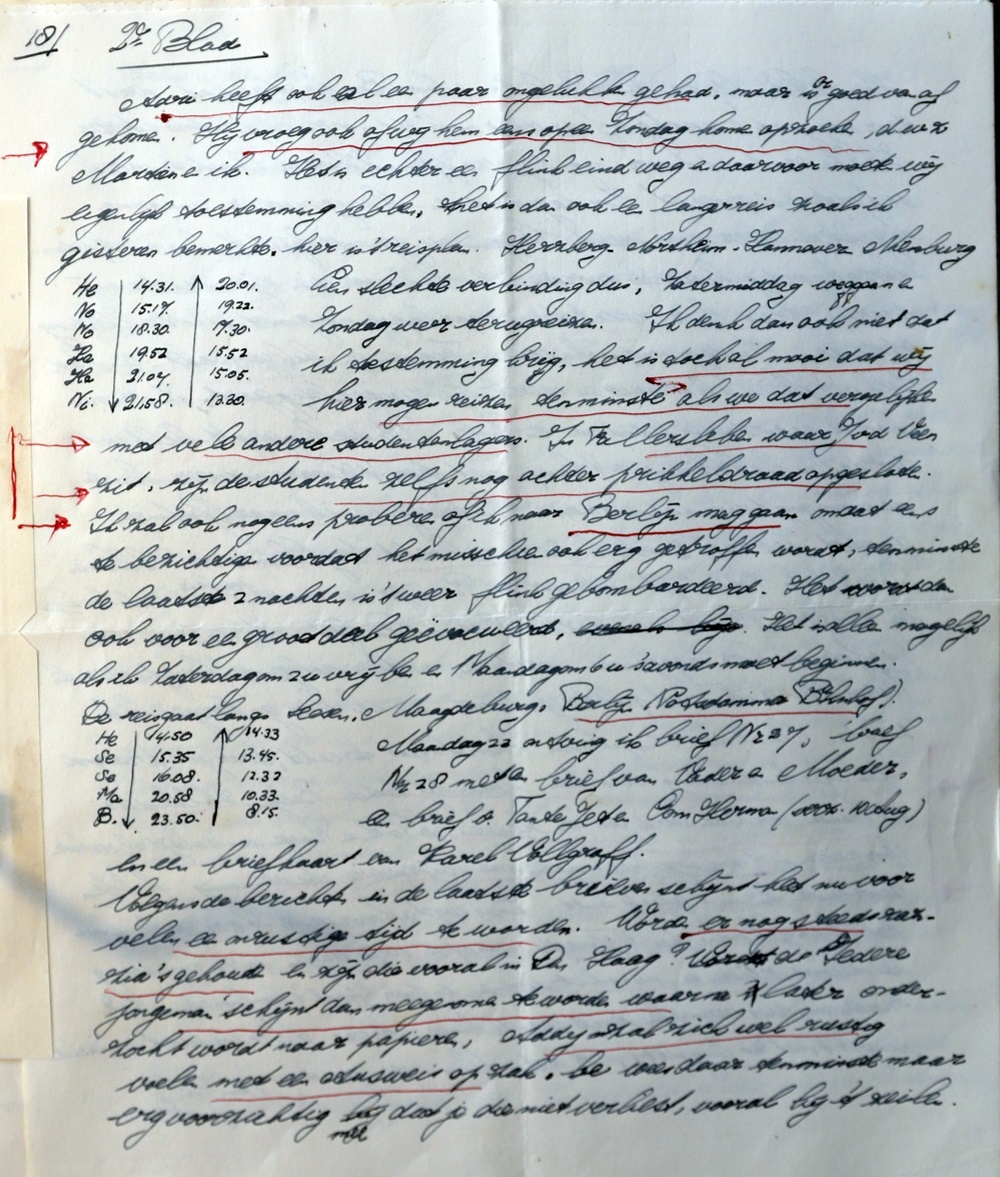 18/ 2e Blad
Adri heeft ook al een paar ongelukken gehad, maar is er goed van af
gekomen. Hij vroeg ook of wij hem eens op een Zondag komen opzoeken, d.w.z
Marten en ik. Het is echter een flink eind weg en daarvoor moeten wij
eigenlijk toestemming hebben. Het is dan ook een lange reis zoals ik
gisteren bemerkte. hier is 't reisplan. Herzberg - Northeim - Hannover Nienburg
He 14.31. 20.01. Een slechte verbinding dus, Zatermiddag weggaan en
No 15.17. 19.22. Zondag weer terugreizen. Ik denk dan ook niet dat
No 18.30. 17.30.
Ha 19.52 15.52 ik toestemming krijg, het is toch al mooi dat wij
Ha 21.04. 15.05.
Ni. 21.58. 13.30. hier mogen reizen tenminste als we dat vergelijken
met vele andere studentenlagers. In Fallersleben waar Jod Veen
zit, zijn de studenten zelfs nog achter prikkeldraad opgesloten.
Ik zal ook nog eens proberen of ik naar Berlijn mag gaan om dat eens
te bezichtigen voordat het misschien ook erg getroffen wordt, tenminste
de laatste 2 nachten is 't weer flink gebombardeerd. Het wordt dan
ook voor een groot deel geëvacueerd, Het is alleen mogelijk
als ik Zaterdag om 2 u vrij ben en Maandag om 6 u 's avonds moet beginnen.
De reis gaat langs Seesen, Maagdeburg, Berlijn Potsdammer Bahnhof).
He 14.50 14.33 Maandag 23 ontving ik brief Nr 27, brief
Se 15.35 13.45.
Se 16.08. 12.32 Nr 28 met een brief van Vader en Moeder,
Ma 20.58 10.33.
B. 23.50. 8.15. een brief v. Tante Jet en Oom Herman (voor. 10 Aug)
en een briefkaart van Karel Vollgraff.
Volgens de berichten in de laatste brieven schijnt het nu voor
velen een onrustige tijd te worden. Worden er nog steeds raz-
zia's gehouden en zijn die vooral in Den Haag? de Iedere
jongeman schijnt dan meegenomen te worden waarna later onder-
zocht wordt naar papieren, Addy zal zich wel rustig
voelen met een Ausweis op zak. ben wees daar tenminste maar
erg voorzichtig mee dat je die niet verliest, vooral bij 't zeilen.